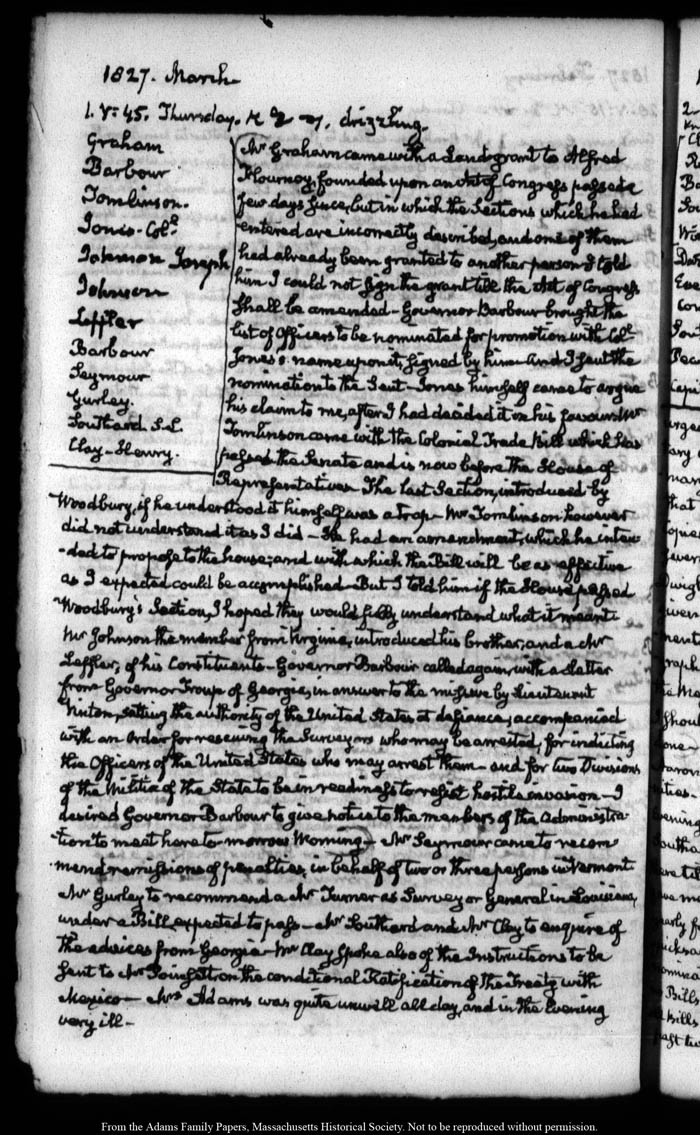 1827. March
1. V:45. Thursday. drizzling.
Graham
Barbour
Tomlinson.
Jones-Col.
Johnson Joseph
Johnson
Leffler
Barbour
Seymour
Gurley.
Southard S.L.
Clay-Henry.
Mr Graham came with a Land grant to Alfred
Flournoy, founded upon an Act of Congress passed a
few days since, but in which the Sections which he had
entered are incorrectly described, and one of them
had already been granted to another person I told
him I could not sign the grant till the Act of Congress
shall be amended- Governor Barbour brought the
list of Officers to be nominated for promotion with Col.
Jones's name upon it, signed by him- And I sent the
nomination to the Senate- Jones himself came to argue
his claim to me, after I had decided it in his favour. Mr
Tomlinson came with the Colonial Trade Bill which has
passed the Senate and is now before the House of
Representatives- The last Section, introduced by
Woodbury, if he understood it himself was a trap- Mr Tomlinson however
did not understand it as I did- He had an amendment, which he inten
-ded to propose to the house; and with which the Bill will be as effective
as I expected could be accomplished- But I told him if the House passed
Woodbury's Section, I hoped they would fully understand what it meant-
Mr Johnson the member from Virginia, introduced his brother; and a Mr
Leffler, of his Constituents- Governor Barbour called again, with a Letter
from Governor Troup of Georgia, in answer to the missive by Lieutenant
Vinton, setting the authority of the United States at defiance, accompanied
with an Order for rescuing the Surveyors who may be arrested, for indicting
the Officers of the United States who may arrest them- and for two Divisions
of the Militia of the State to be in readiness to resist hostile invasion- I
desired Governor Barbour to give notice to the members of the Administra-
-tion to meet here to-morrow Morning- Mr Seymour came to recom
mend remissions of penalties, in behalf of two or three persons in Vermont
Mr Gurley to recommend a Mr Turner as Surveyor General in Louisiana,
under a Bill expected to pass- Mr Southard and Mr Clay to enquire of
the advices from Georgia- Mr Clay spoke also of the Instructions to be
sent to Mr Poinsett on the conditional Ratification of the Treaty with
Mexico- Mrs Adams was quite unwell all day, and in the Evening
very ill-
From the Adams Family Papers, Massachusetts Historical Society. Not to be reproduced without permission.